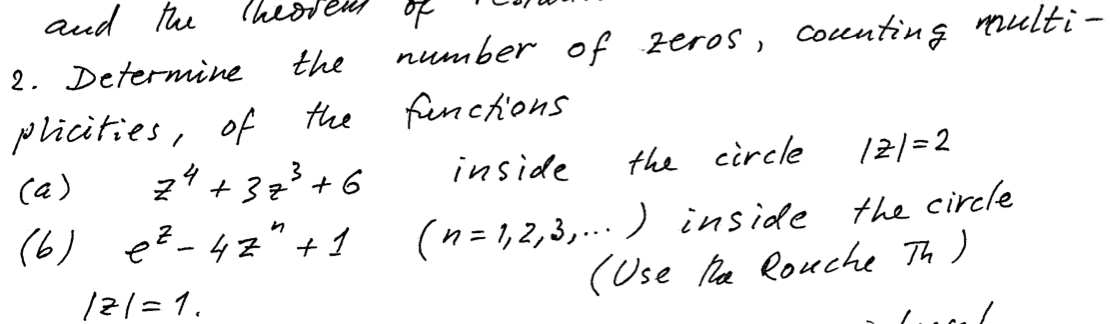 and the Theorem of
2. Determine the number of zeros, counting multi-
plicities, of the functions
(a) z⁴ + 3z³ + 6 inside the circle |z|=2
(b) e^z - 4z^n + 1 (n = 1,2,3,...) inside the circle
|z| = 1. (Use the Rouche Th)